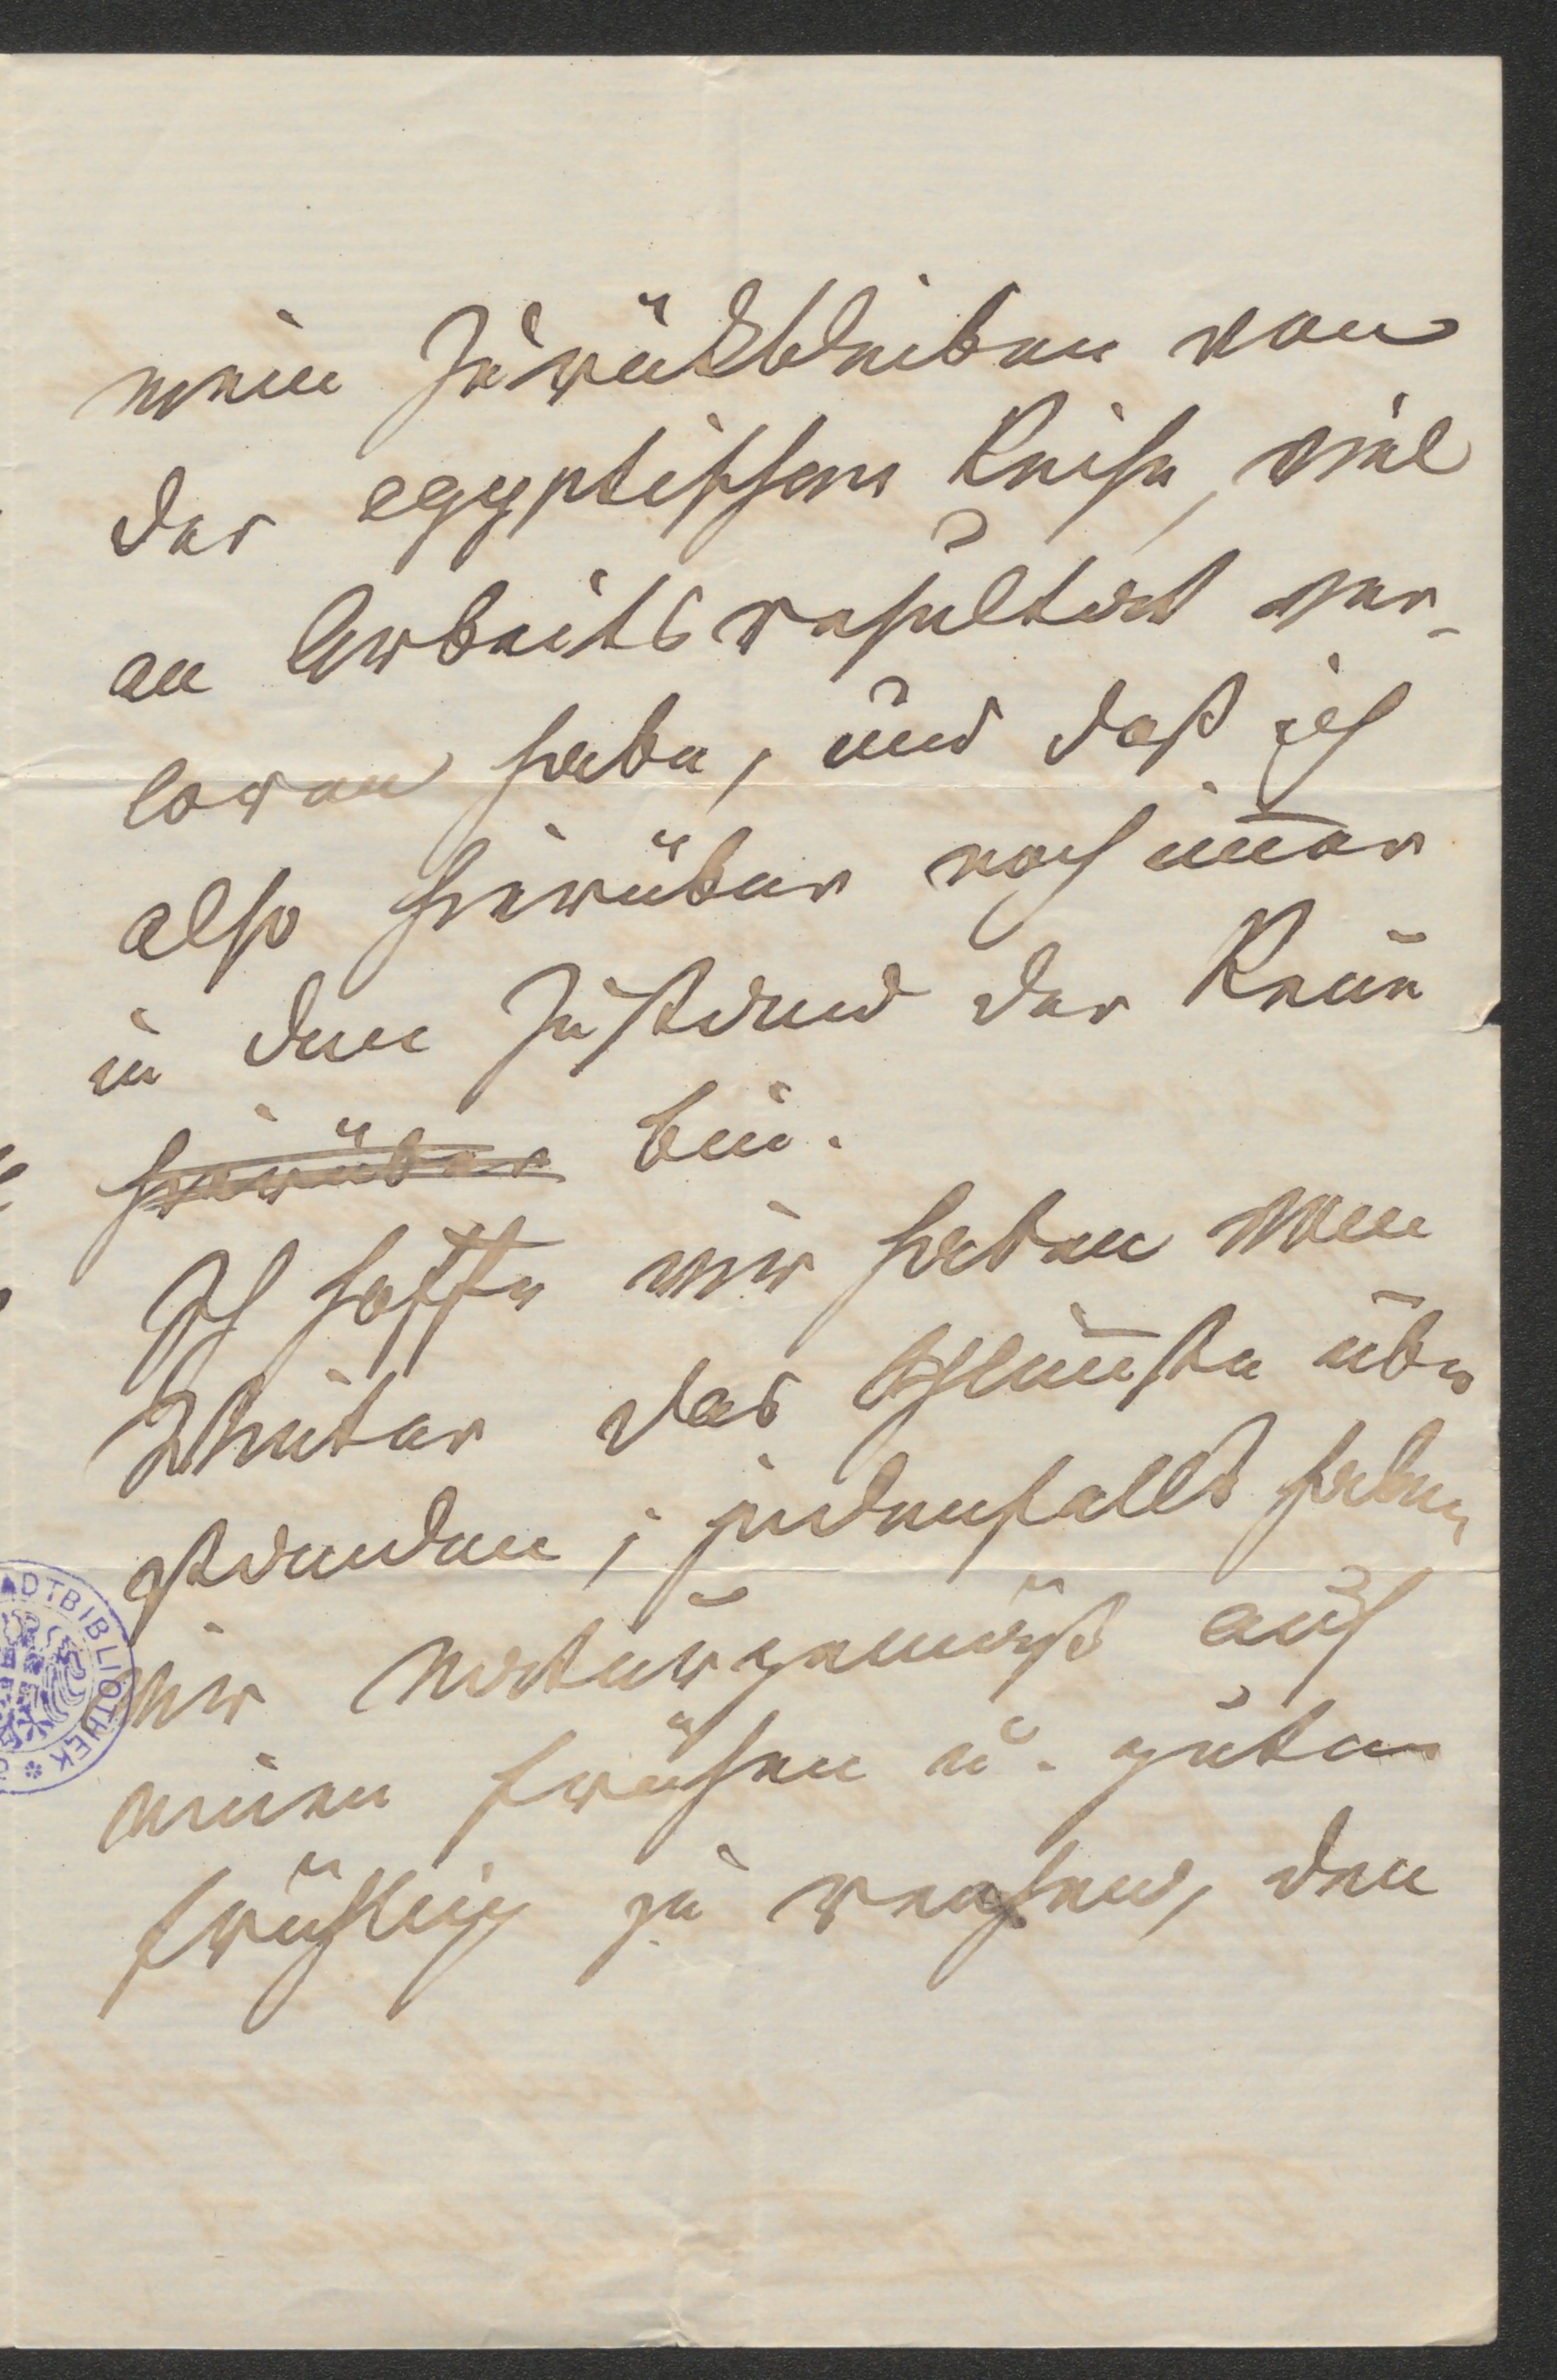 mein Zurückbleiben von
der egyptischen Reise, viel
an Arbeitsresultat ver-
loren habe, und daß ich
also hierüber noch im̅er
in dem Zustand der Reue
hierüber bin.
Ich hoffe wir haben vom
Winter das schlim̅ste über
standen; jedenfalls haben
wir naturgemäß auf
einen frühen u. guten
Frühling zu rechnen, den
ADTBIBLIOTHEK *